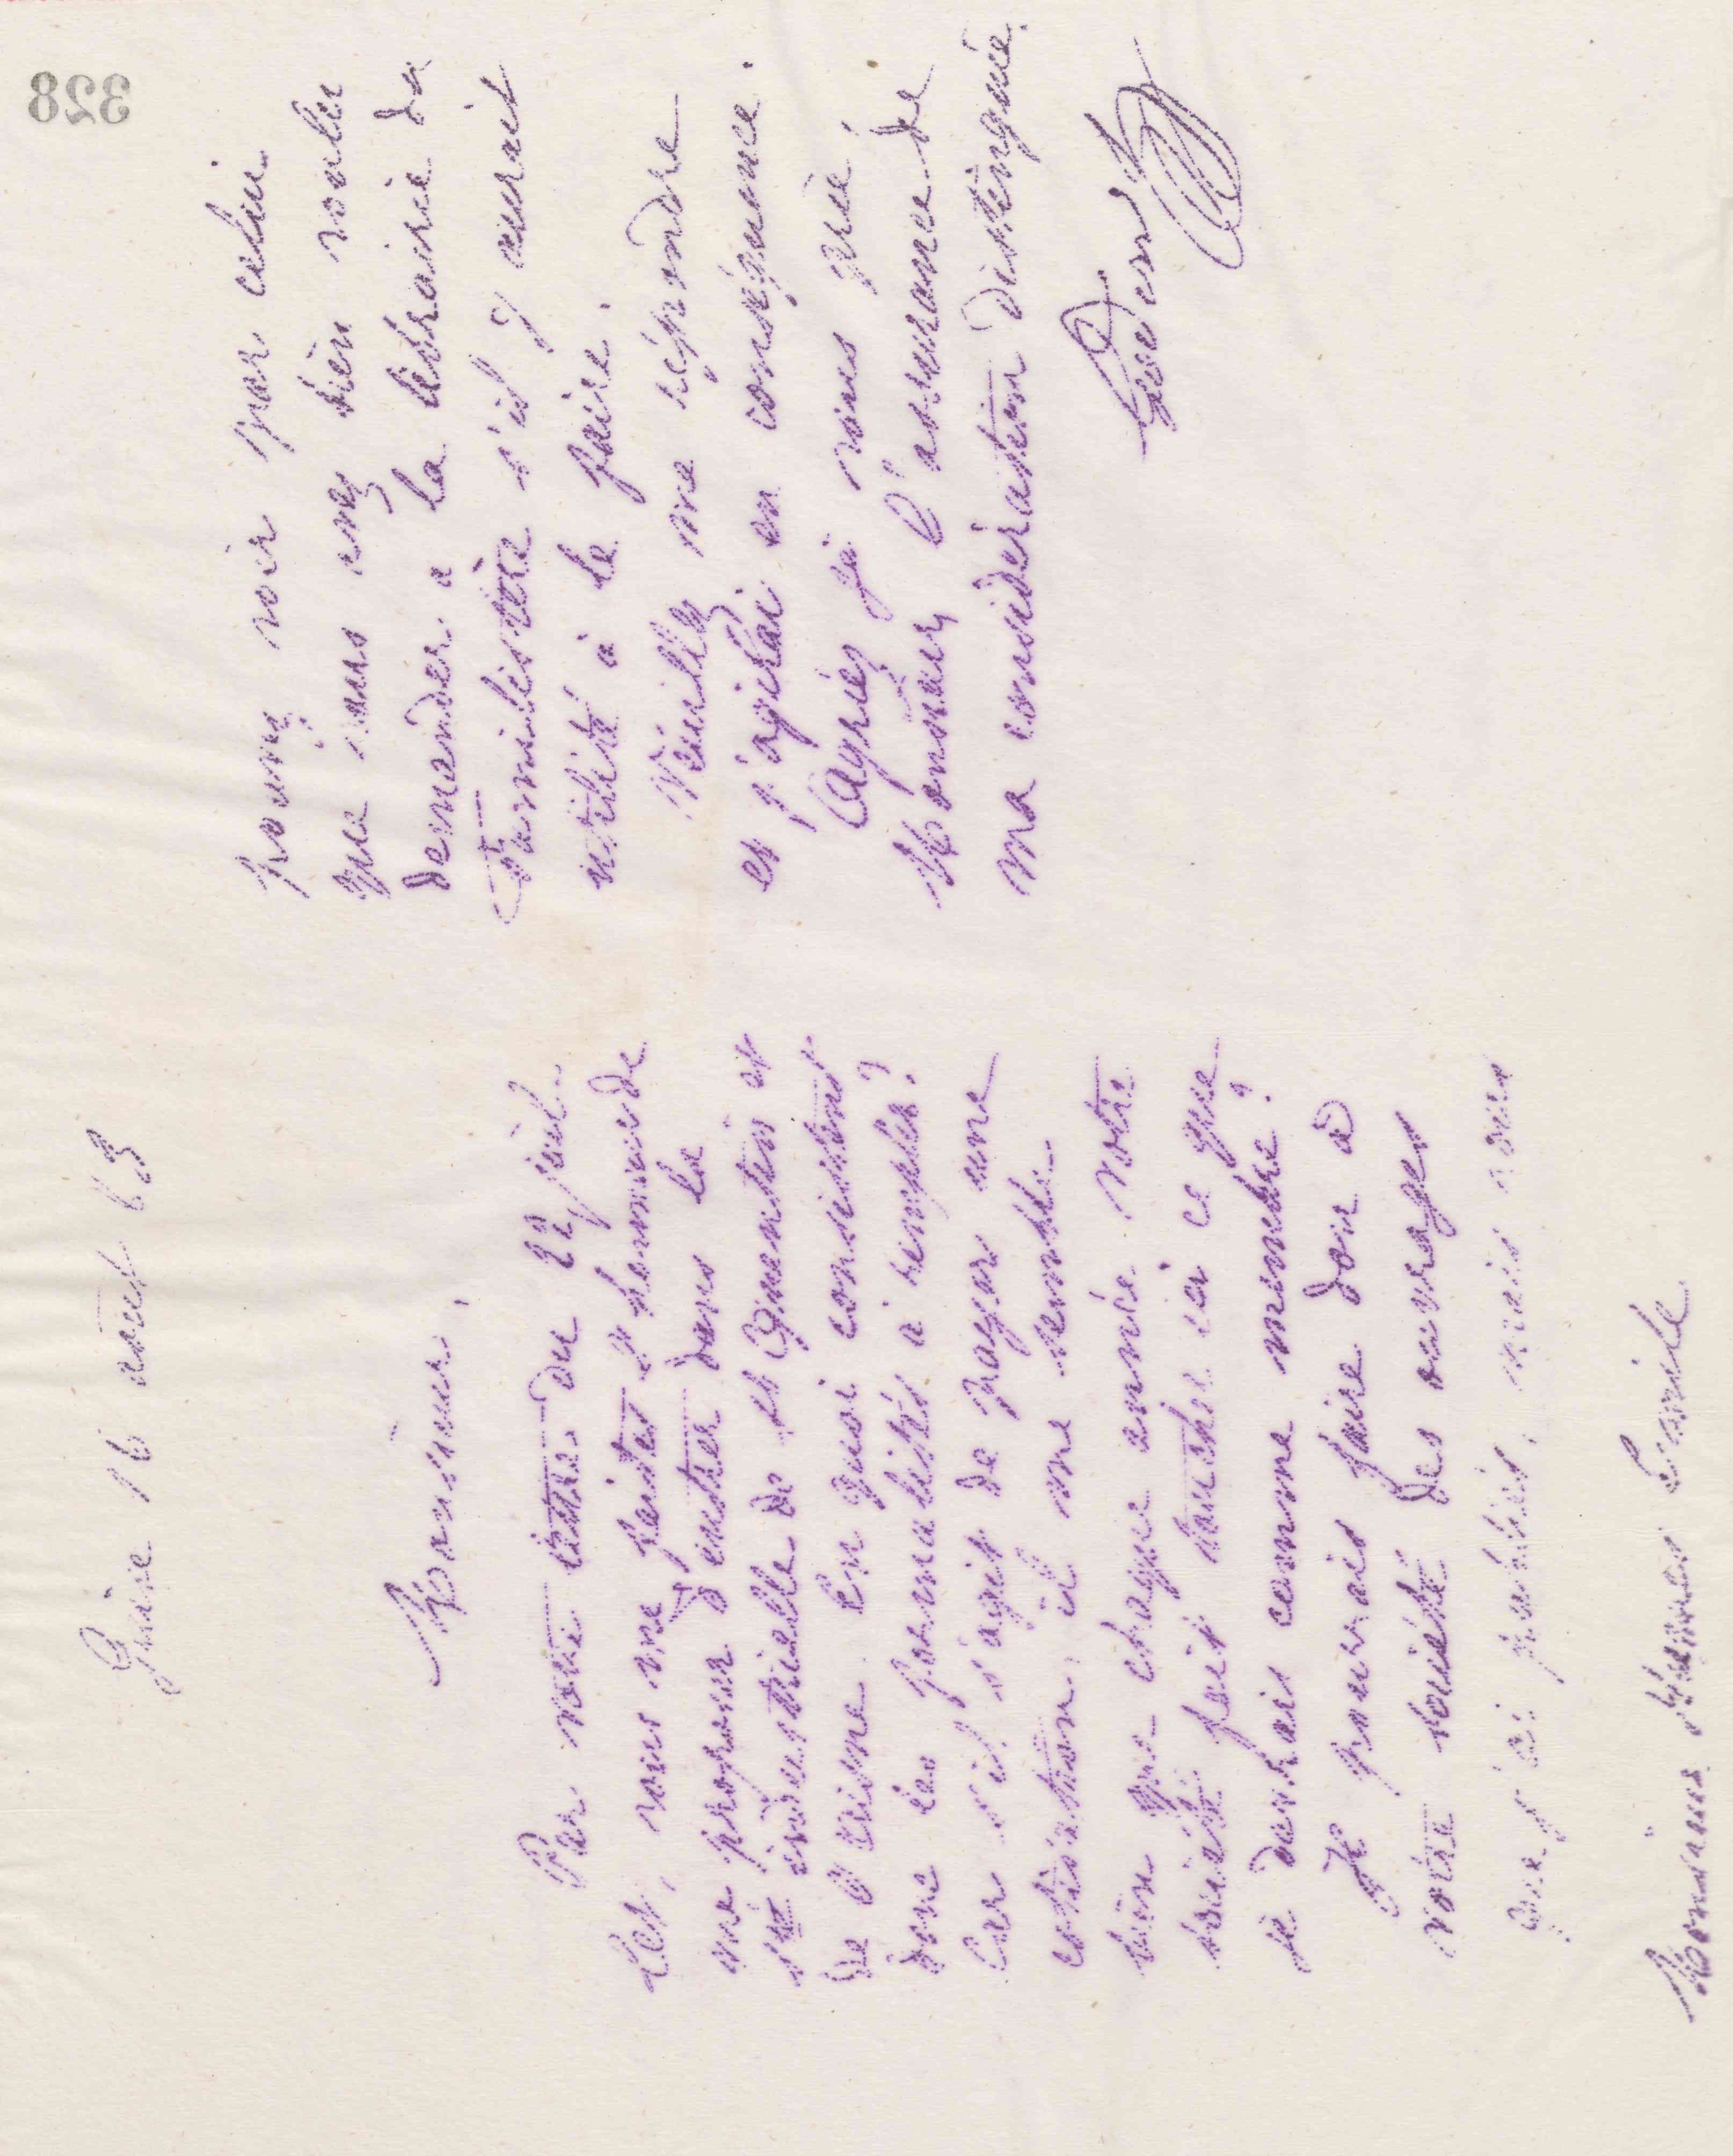 Guise 16 août 83
Monsieur,
Par votre lettre du 22 juil-
let, vous me faites l'honneur de
me proposer d'entrer dans la
sté industrielle de St Quentin et
de l'aisne. En quoi consistent
donc les formalités à remplir?
Car s'il s'agit de payer une
cotisation, il me semble
bien que chaque année votre
société fait toucher ici ce que
je devrais comme membre?
Je pourrais faire don à
votre société des ouvrages
que j'ai publiés, mais vous
Monsieur
pouvez voir par celui
que vous avez bien voulu
demander à la librairie du
Familistère s'il y aurait
utilité à le faire.
Veuillez me répondre
et j'agirai en conséquence.
Agréez je vous prie,
Monsieur, l'assurance de
ma considération distinguée.
Godin
328